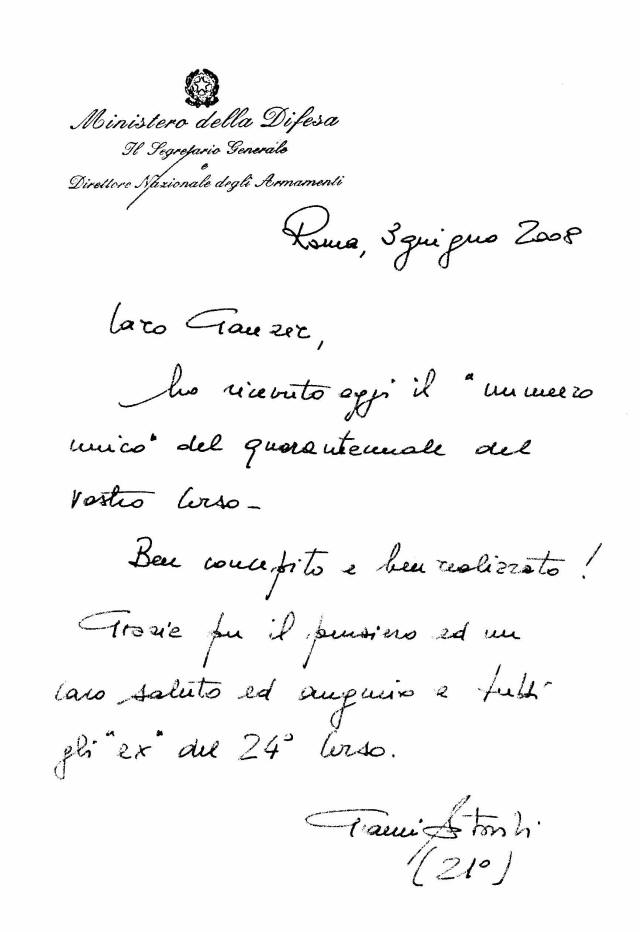 Ministero della Difesa
Il Segretario Generale
e
Direttore Nazionale degli Armamenti
Roma, 3 giugno 2008
Caro Ganzer,
ho ricevuto oggi il "numero
unico" del quarantennale del
vostro Corso -
Ben concepito e ben realizzato!
Grazie per il pensiero ed un
caro saluto ed augurio a tutti
gli "ex" del 24° Corso.
Gianni
(21°)